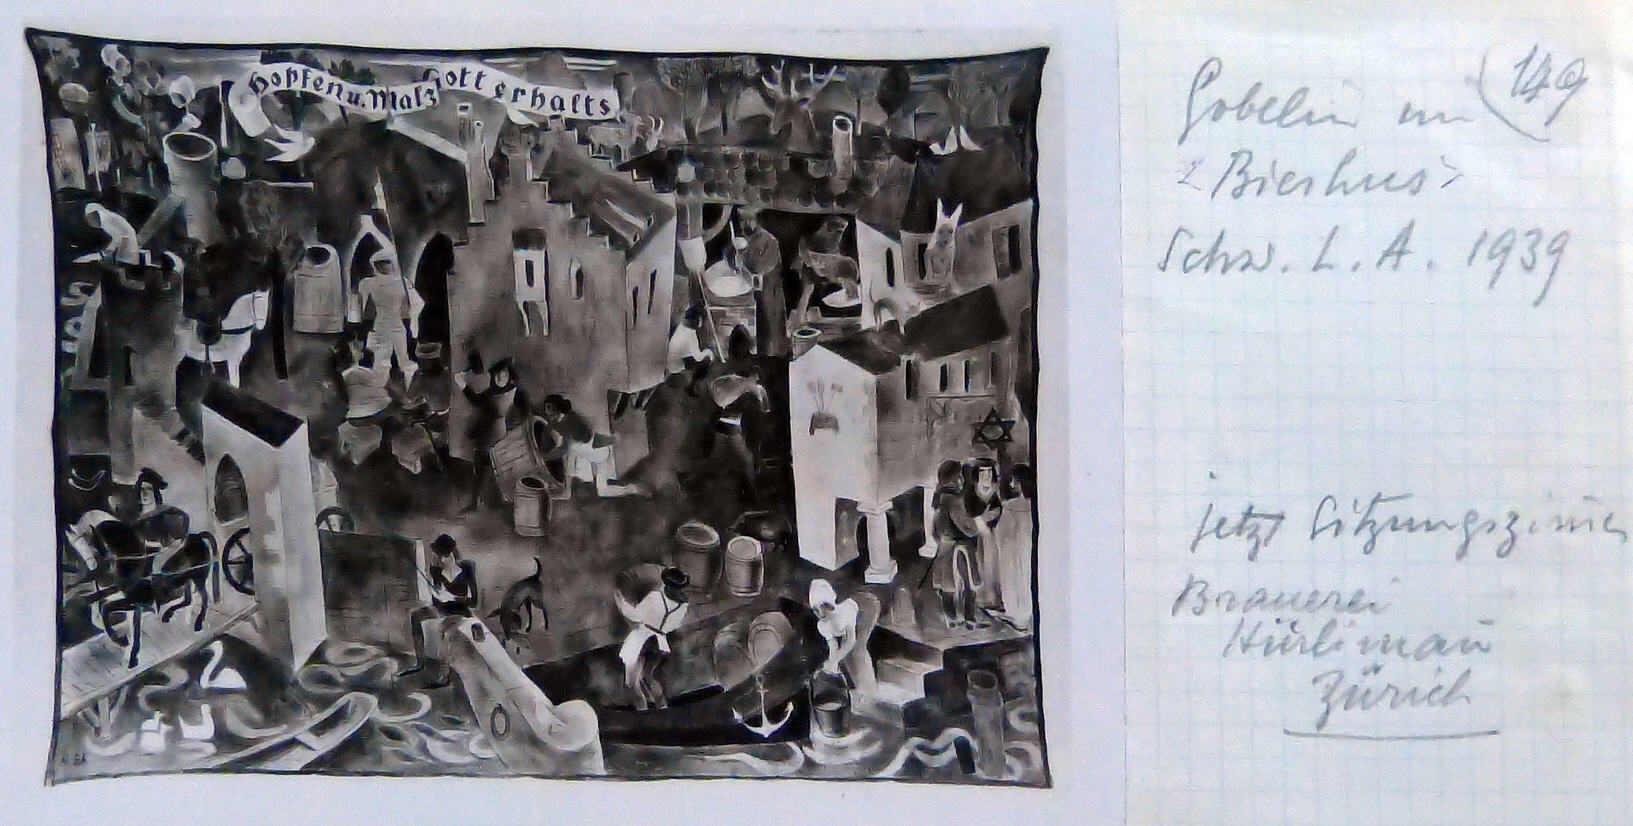 Hopfen u. Malz Gott erhalts
Gobelin im 149
"Bierhus"
Schw. L. A. 1939
jetzt Sitzungszimer
Brauerei
Hürlimañ
Zürich